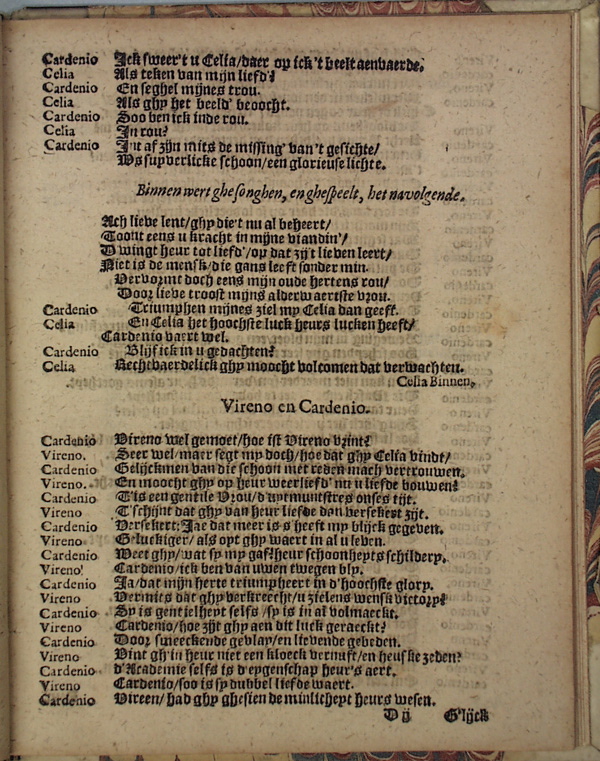 Cardenio Ick sweer't u Celia/daer op ick 't beelt aenvaerde.
Celia Als teken van mijn liefd'?
Cardenio En seghel mijnes trou.
Celia Als ghy het beeld' beoocht.
Cardenio Soo ben ick inde rou.
Celia In rou?
Cardenio In't af zijn mits de missing' van't gesichte/
Ws supverlicke schoon/een glorieuse lichte.
Binnen wert ghesonghen, en ghespeelt, het navolgende.
Ach lieve lent/ghy die't nu al beheert/
Toont eens u kracht in mijne viandin'/
Dwingt heur tot liefd'/op dat zijt lieven leert/
Niet is de mensk/die gans leeft sonder min.
Vervormt doch eens mijn oude hertens rou/
Door lieve troost mijns alderwaertste vrou.
Cardenio Triumphen mijnes ziel my Celia dan geeft.
Celia En Celia het hoochste luck heurs lucken heeft/
Cardenio vaert wel.
Cardenio Blijf ick in u gedachten?
Celia Rechtvaerdelick ghy moocht volcomen dat verwachten.
Celia Binnen.
Vireno en Cardenio.
Cardenio Vireno wel gemoet/hoe ist Vireno vrint?
Vireno. Seer wel/maer segt my doch/hoe dat ghy Celia vindt/
Cardenio Gelijckmen van die schoon met reden mach vertrouwen.
Vireno. En moocht ghy op heur weerliefd' nu u liefde bouwen?
Cardenio T'is een gentile Vrou/d'uytmuntstres onses tijt.
Vireno T'schijnt dat ghy van heur liefde dan versekert zijt.
Cardenio Versekert: Jae dat meer is s' heeft my blijck gegeven.
Vireno Geluckiger/als opt ghy waert in al u leven.
Cardenio Weet ghy/wat sy my gaf? heur schoonheyts schildery.
Vireno Cardenio/ick ben van uwen twegen bly.
Cardenio Ja/dat mijn herte triumpheert in d'hoochste glory.
Vireno Vermits dat ghy verkreecht/u zielens wensk victory?
Cardenio Sy is gentielheyt selfs/sy is in al volmaeckt.
Vireno Cardenio/hoe zijt ghy aen dit luck geraeckt?
Cardenio Door smeeckende gevlay/en lievende gebeden.
Vireno Vint gh'in heur niet een kloeck vernuft/en heuske zeden?
Cardenio d'Academie selfs is d'eygenschap heur's aert.
Vireno Cardenio/soo is sy dubbel liefde waert.
Cardenio Vireen/had ghy ghesien de minlicheyt heurs wesen.
D ij G'lijck